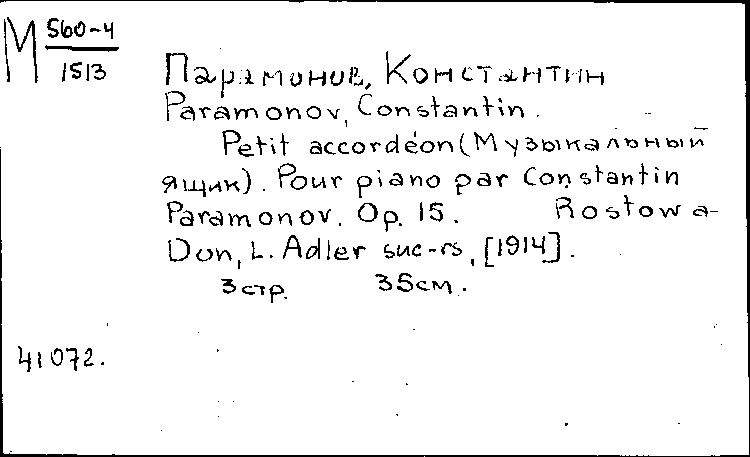 M 560-4
1513
Парамонов, Константин
Paramonov, Constantin.
Petit accordéon (Музыкальный
ящик). Pour piano par Constantin
Paramonov. Op. 15. Rostow a-
Don, L. Adler suc-rs, [1914].
3 стр. 35 см.
41072.